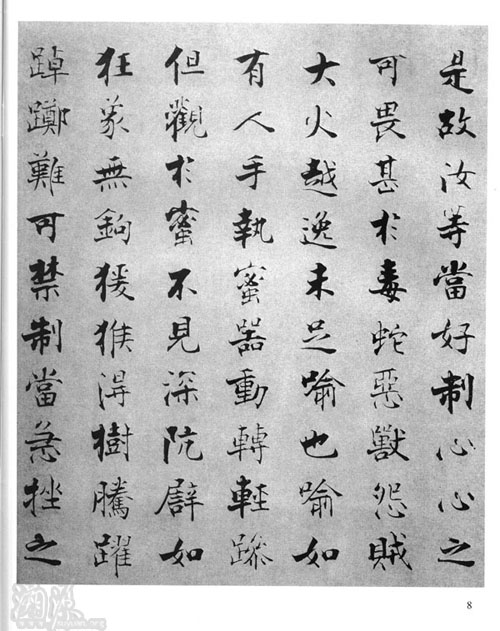 是故汝等當好制心心之
可畏甚於毒蛇惡獸怨賊
大火越逸未足喻也喻如
有人手執蜜器動轉輕躁
但觀於蜜不見深阬辟如
狂象無鉤猨猴得樹騰躍
踔躑難可禁制當急挫之
8